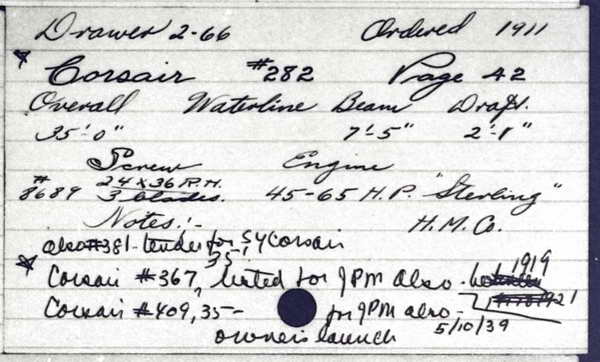 Drawer 2-66 Ordered 1911
* Corsair #282 Page 42
Overall Waterline Beam Draft.
35'-0" 7'-5" 2'-1"
Screw Engine
#8689 24 x 36 R.H. 45-65 H.P. "Sterling"
3 blades.
Notes:- H.M.Co.
also #381-tender for SY Corsair
35'
* Corsair #367, listed for JPM also - 1919
Corsair #409, 35- for JPM also - 1921
owners launch 5/10/39